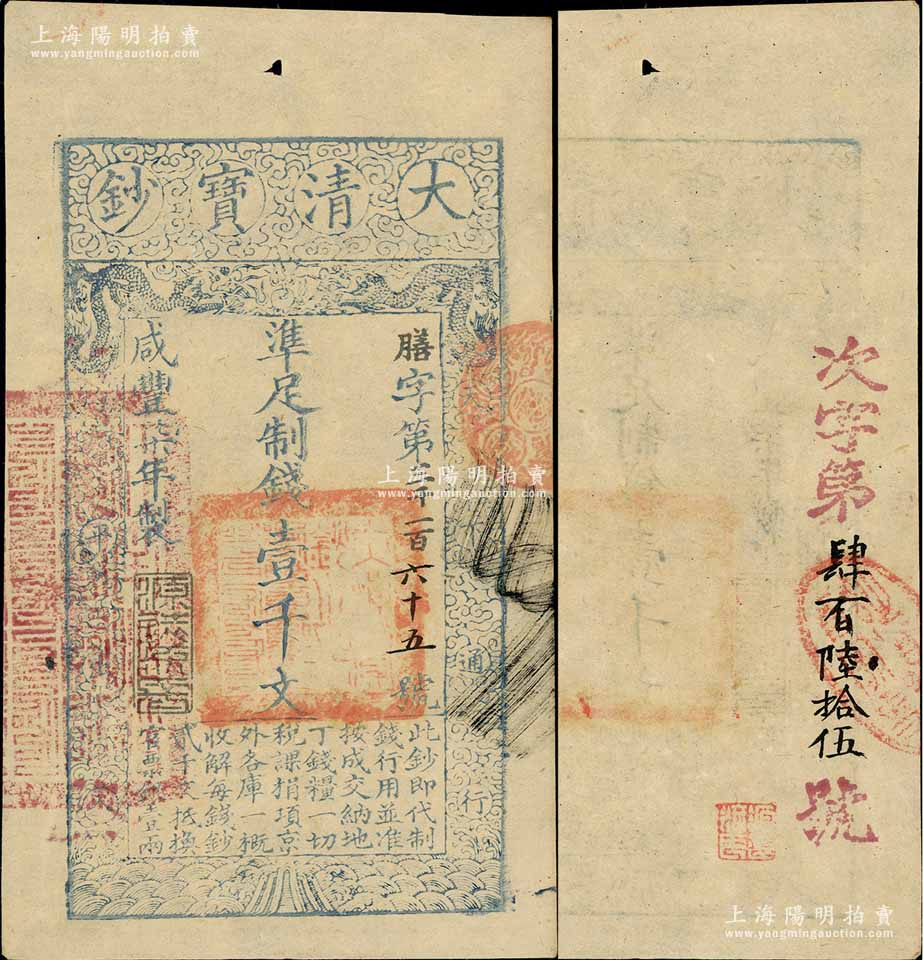 上海陽明拍賣
www.yangmingauction.com
大清寶鈔
膳字第
一百六十五號
準足制錢壹千文
咸豐柒年製
通行
此鈔即代制
錢行用並准
按成交納地
丁錢糧一切
稅課捐項京
外各庫一概
收解每錢鈔
貳千文抵換
官票銀壹兩
上海陽明拍賣
www.yangmingauction.com
次字第肆百陸拾伍號
上海陽明拍賣
www.yangmingauction.com